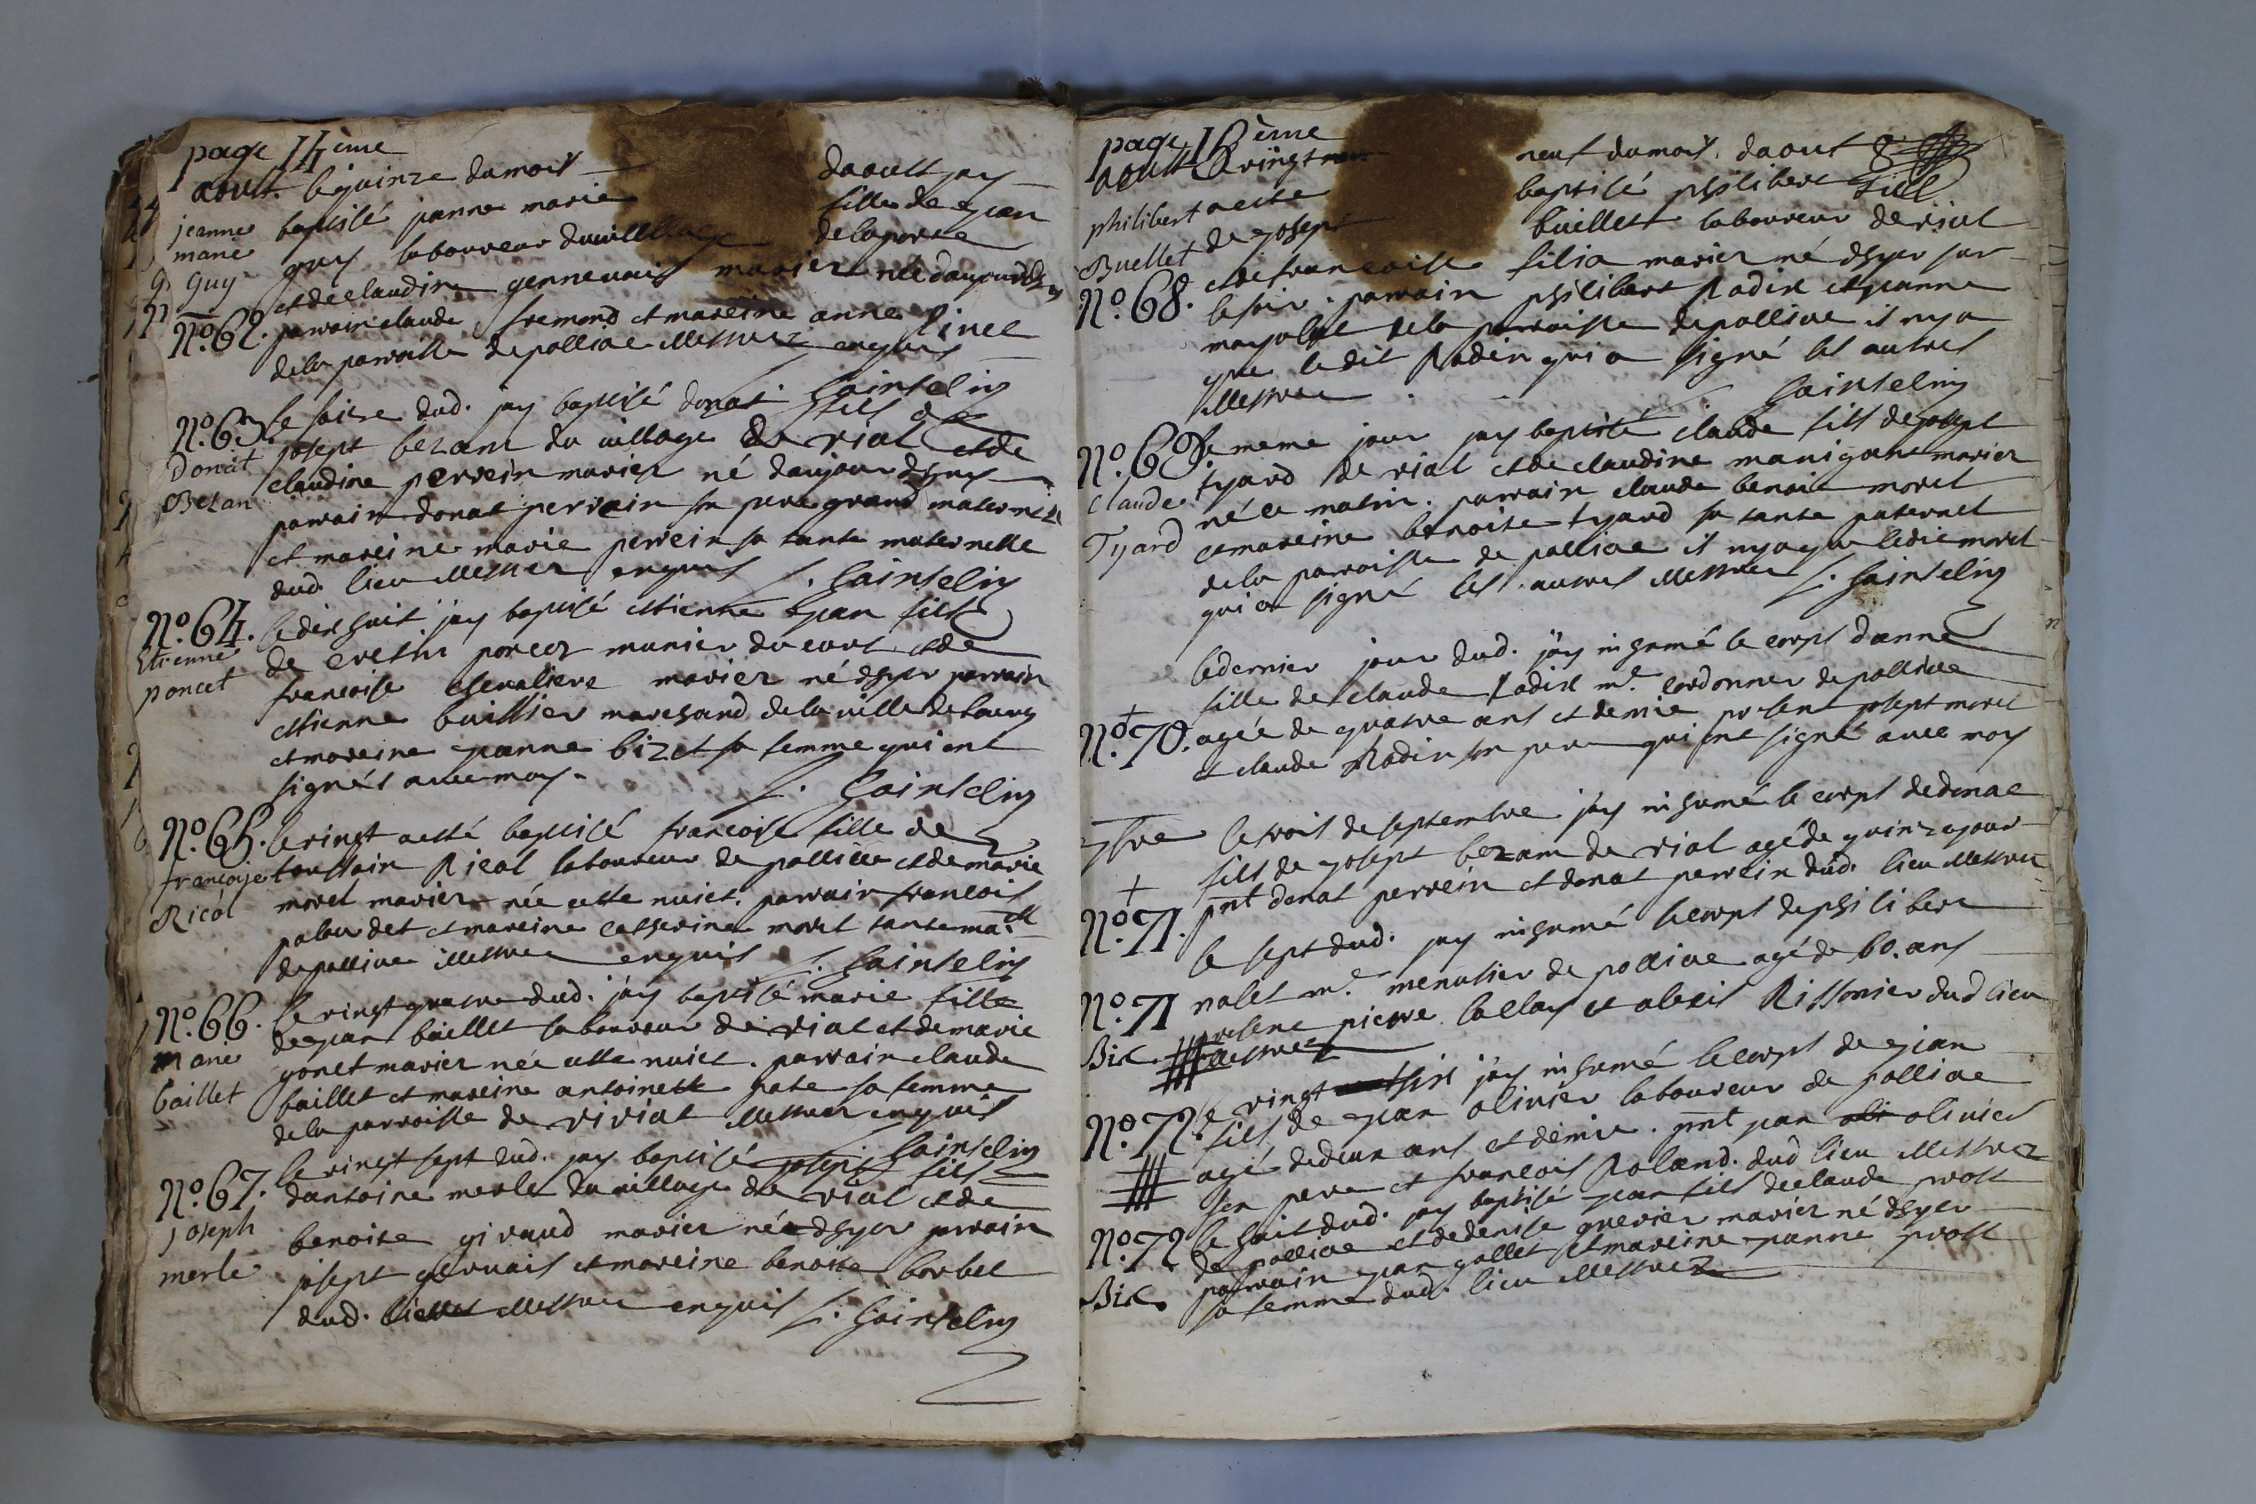 page 14ème
aoust. le quinze du mois daoust jay
jeanne baptisé janne marie fille de jean
marie guy laboureur du village de laporte
guy et de claudine gennevais mariez née daujourdhuy
N.º 62. parrain claude fremond et mareine anne
de la parroisse de polliac illettrez enquis
S. Gainselin
N.º 63. le seize dud. jay baptisé donat fils de
Donat josept bezam du village de rial et de
Bezan claudine perrein mariez né daujourdhuy
parrain donat perrein son pere grand maternel
et mareine marie perrein sa tante maternelle
dud. lieu illettrez enquis S. Gainselin
N.º 64. le dix huit jay baptisé ettienne jean fils
Etienne de poncet munier du et de
poncet francoise chevaliere mariez né dhyer parrain
ettienne buissier marchand de la ville de bourg
et mareine janne bizet sa femme qui ont
signés avec moy.
S. Gainselin
N.º 65. le vingt aesté baptisé francoise fille de
françoise toussain Rical laboureur de polliac et de marie
Rical morel mariez née cette nuict. parrain francois
paloudet et mareine catherine morel tante ma.lle
de polliac illettrez enquis S. Gainselin
N.º 66. le vingt quatre dud. jay baptisé marie fille
de jean baillet laboureur de rial et de marie
marie gonet mariez née cette nuict. parrain claude
baillet baillet et mareine antoinette pate sa femme
de la parroisse de viriat illettrez enquis
S. Gainselin
N.º 67. le vingt sept dud. jay baptisé joseph fils
dantoine merle du village de rial et de
joseph benoite giraud mariez né dhyer parrain
merle josept gervais et mareine benoite borbet
dud. lieu illettrez enquis S. Gainselin
page 15ème
aoust Le vingt neuf du mois daout
philibert aesté baptisé philibert fill
Buellet de josept buillet laboureur de rial
N.º 68. et de francoise filia mariez né dhyer sur
le soir. parrain philibert Radix et janne
de la parroisse de polliac il nya
que ledit Radix qui a signé les autres
illettrez
S. Gainselin
N.º 69. le meme jour jay baptisé claude fils de josept
claude tyard de rial et de claudine manigant mariez
Tyard né ce matin. parrain claude benoit morel
et mareine benoite tyard sa tante paternel
de la parroisse de polliac il nya que ledit morel
qui a signé les autres illettrez S. Gainselin
le dernier jour dud. jay inhumé le corps danne
fille de claude Radix m.e cordonnier de polliac
N.º 70. agée de quatre ans et demie present josept morel
et claude Radix son pere qui ont signé avec moy
7bre le trois de septembre jay inhumé le corps de donat
fils de josept bezam de rial agé de quinze jour
N.º 71. pnt donat perrein et donat perrein dud. lieu illettrez
le sept dud. jay inhumé le corps de philibert
N.º 71 valet m.e menusier de polliac agé de 60. ans
Bis present pierre lallay et alexis Rissonier dud lieu
illettrez
le vingt six jay inhumé le corps de jean
N.º 72. fils de jean olivier laboureur de polliac
agé de deux ans et demie. pnt jean oli olivier
son pere et francois Roland. dud lieu illettrez
N.º 72 le huit dud. jay baptisé jean fils de claude prost
Bis. de polliac et de denise gverier mariez né dhyer
parrain jean gollet et mareine janne prost
sa femme dud. lieu illettrez